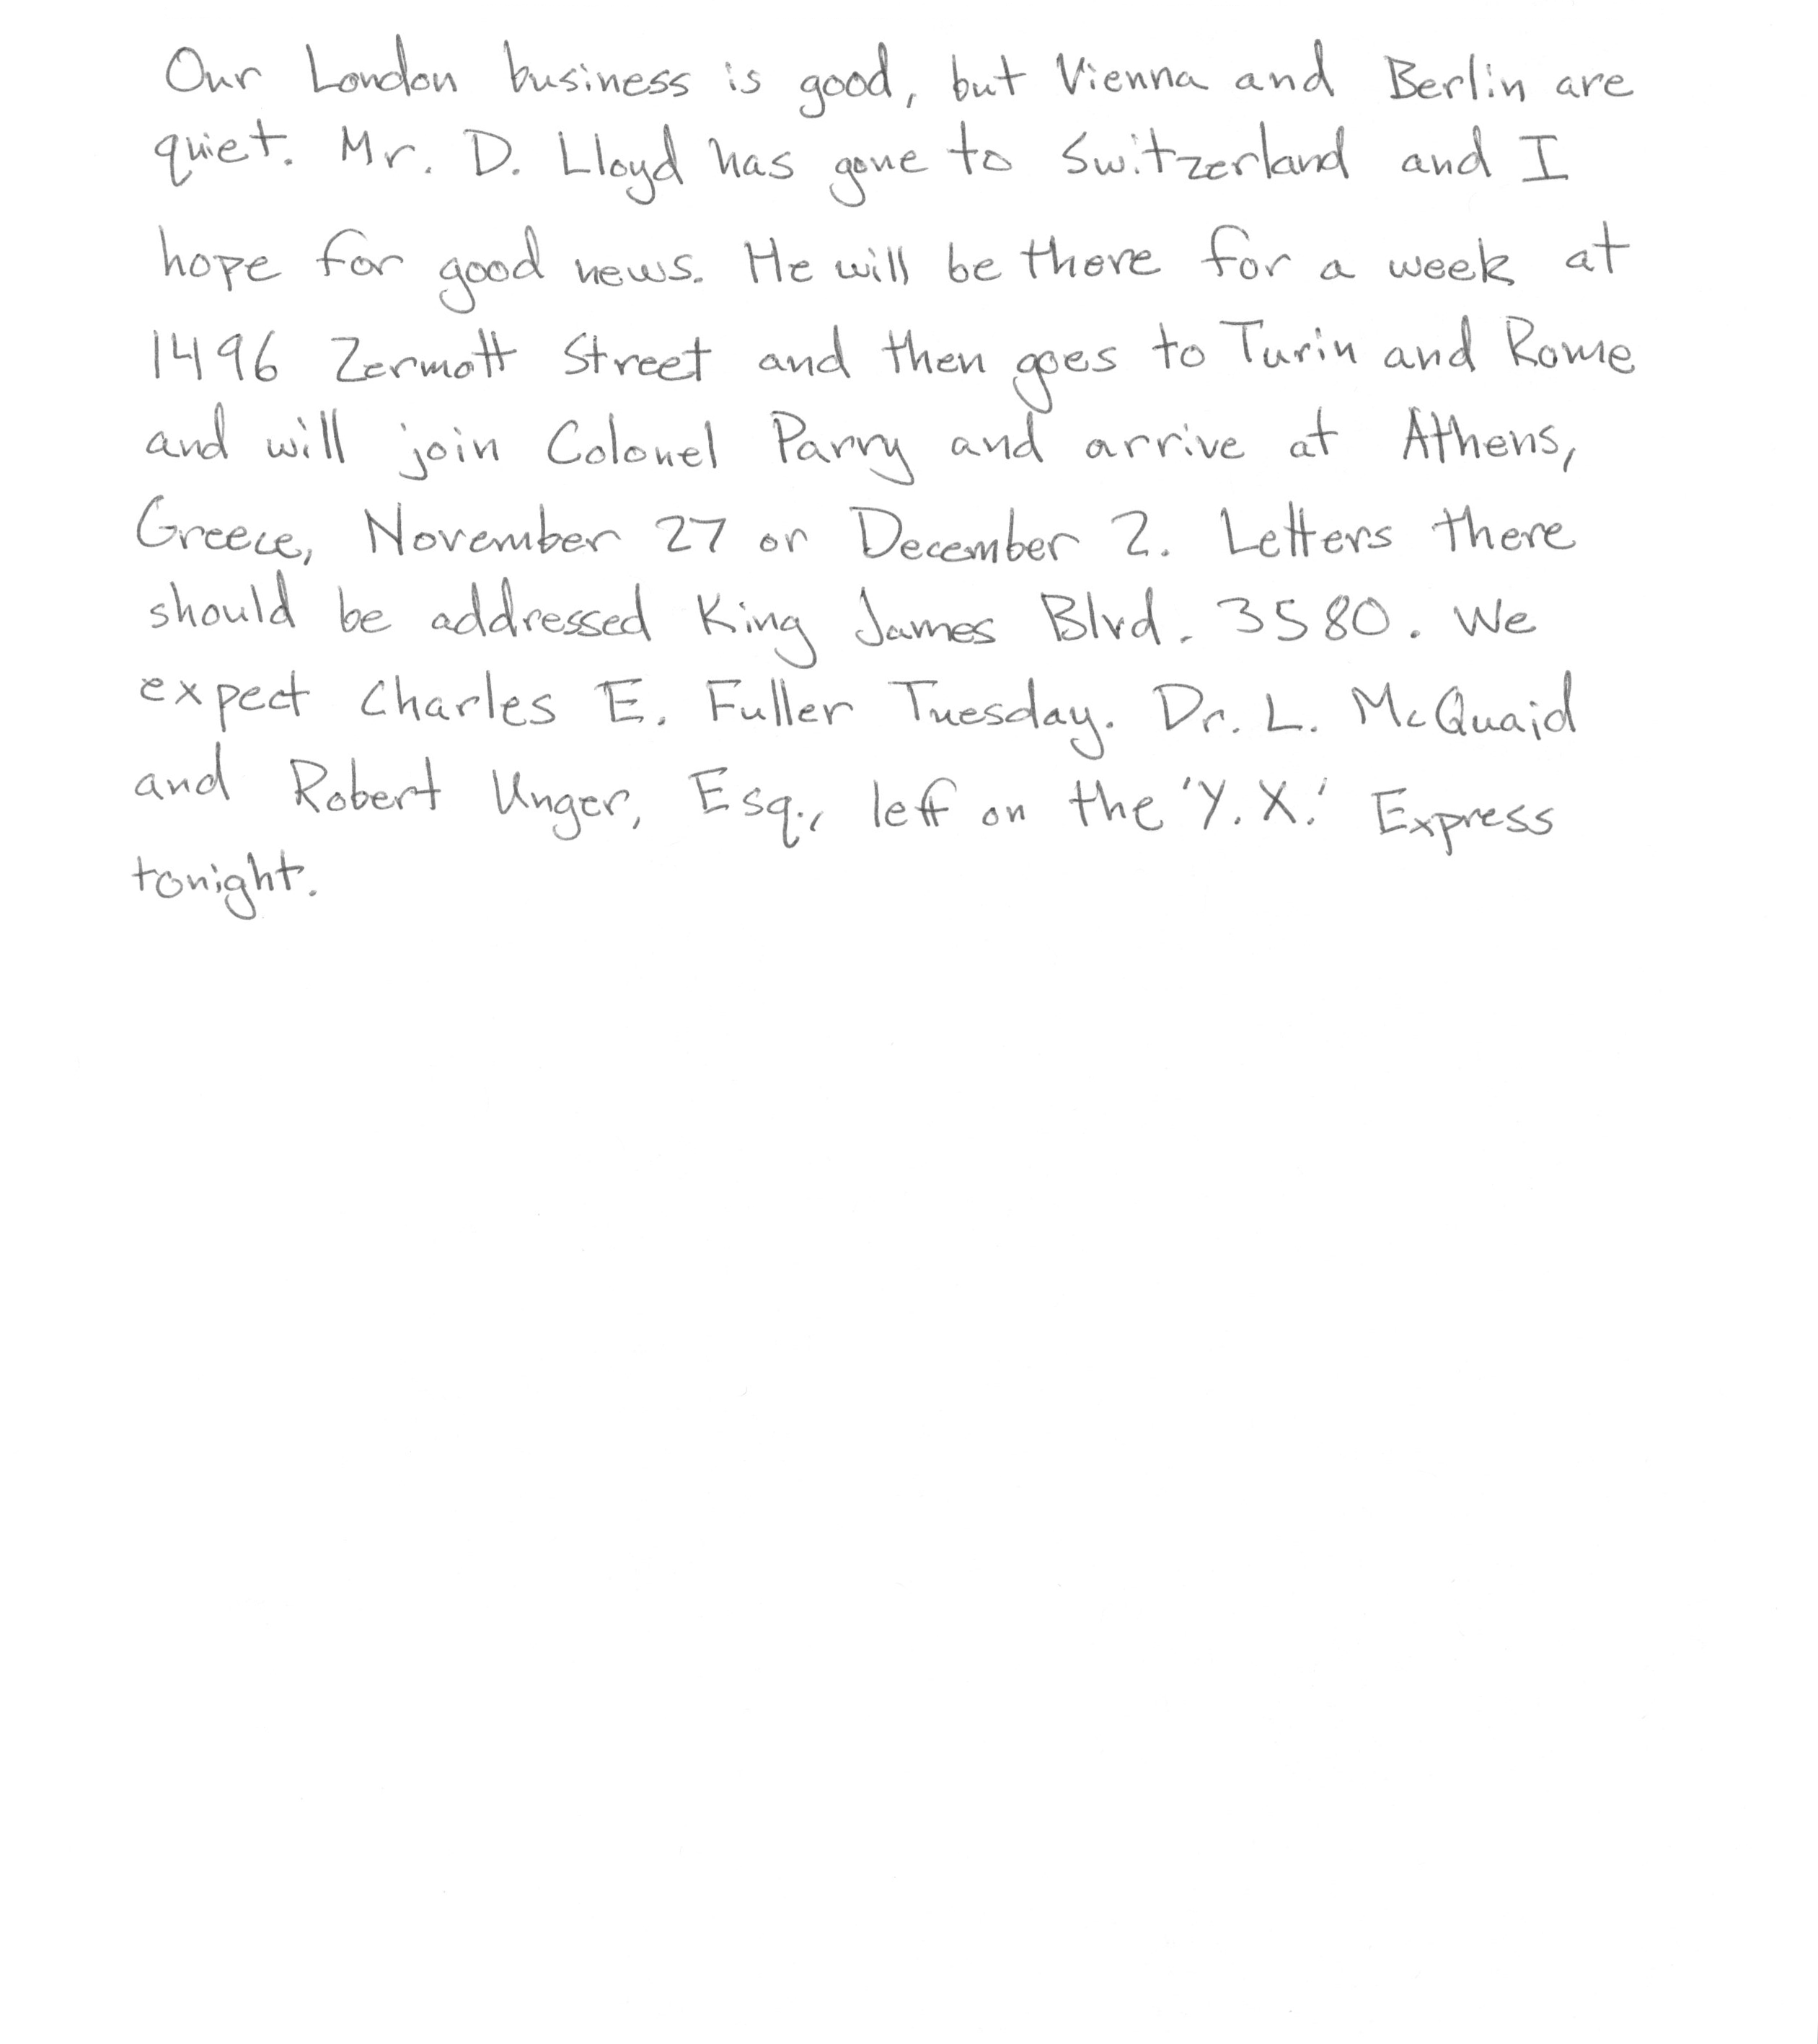 Our London business is good, but Vienna and Berlin are
quiet. Mr. D. Lloyd has gone to Switzerland and I
hope for good news. He will be there for a week at
1496 Zermott Street and then goes to Turin and Rome
and will join Colonel Parry and arrive at Athens,
Greece, November 27 or December 2. Letters there
should be addressed King James Blvd. 3580. We
expect Charles E. Fuller Tuesday. Dr. L. McQuaid
and Robert Unger, Esq., left on the 'Y.X.' Express
tonight.